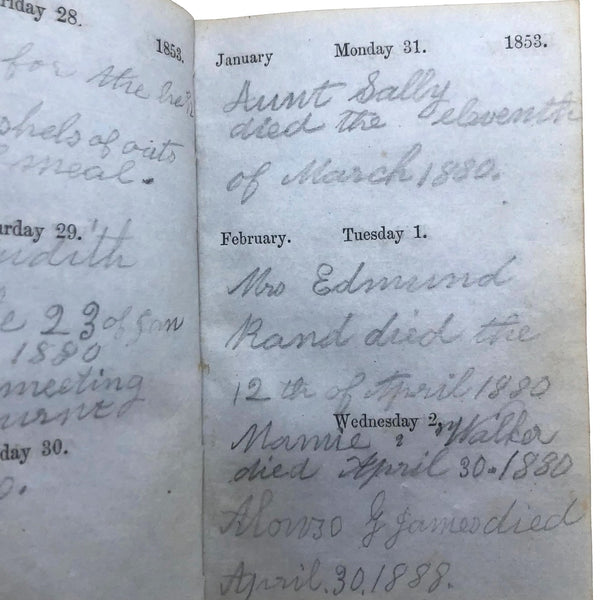 riday 28.
1853.
for the
shels of oats
meal.
urday 29.
udith
e 23 of Jan
1880
meeting
urnt
day 30.
0.
January Monday 31. 1853.
Aunt Sally
died the eleventh
of March 1880.
February. Tuesday 1.
Mrs Edmund
Rand died the
12 th of April 1880
Wednesday 2,
Mamie Walker
died April 30. 1880
Alonzo G James died
April. 30, 1888.